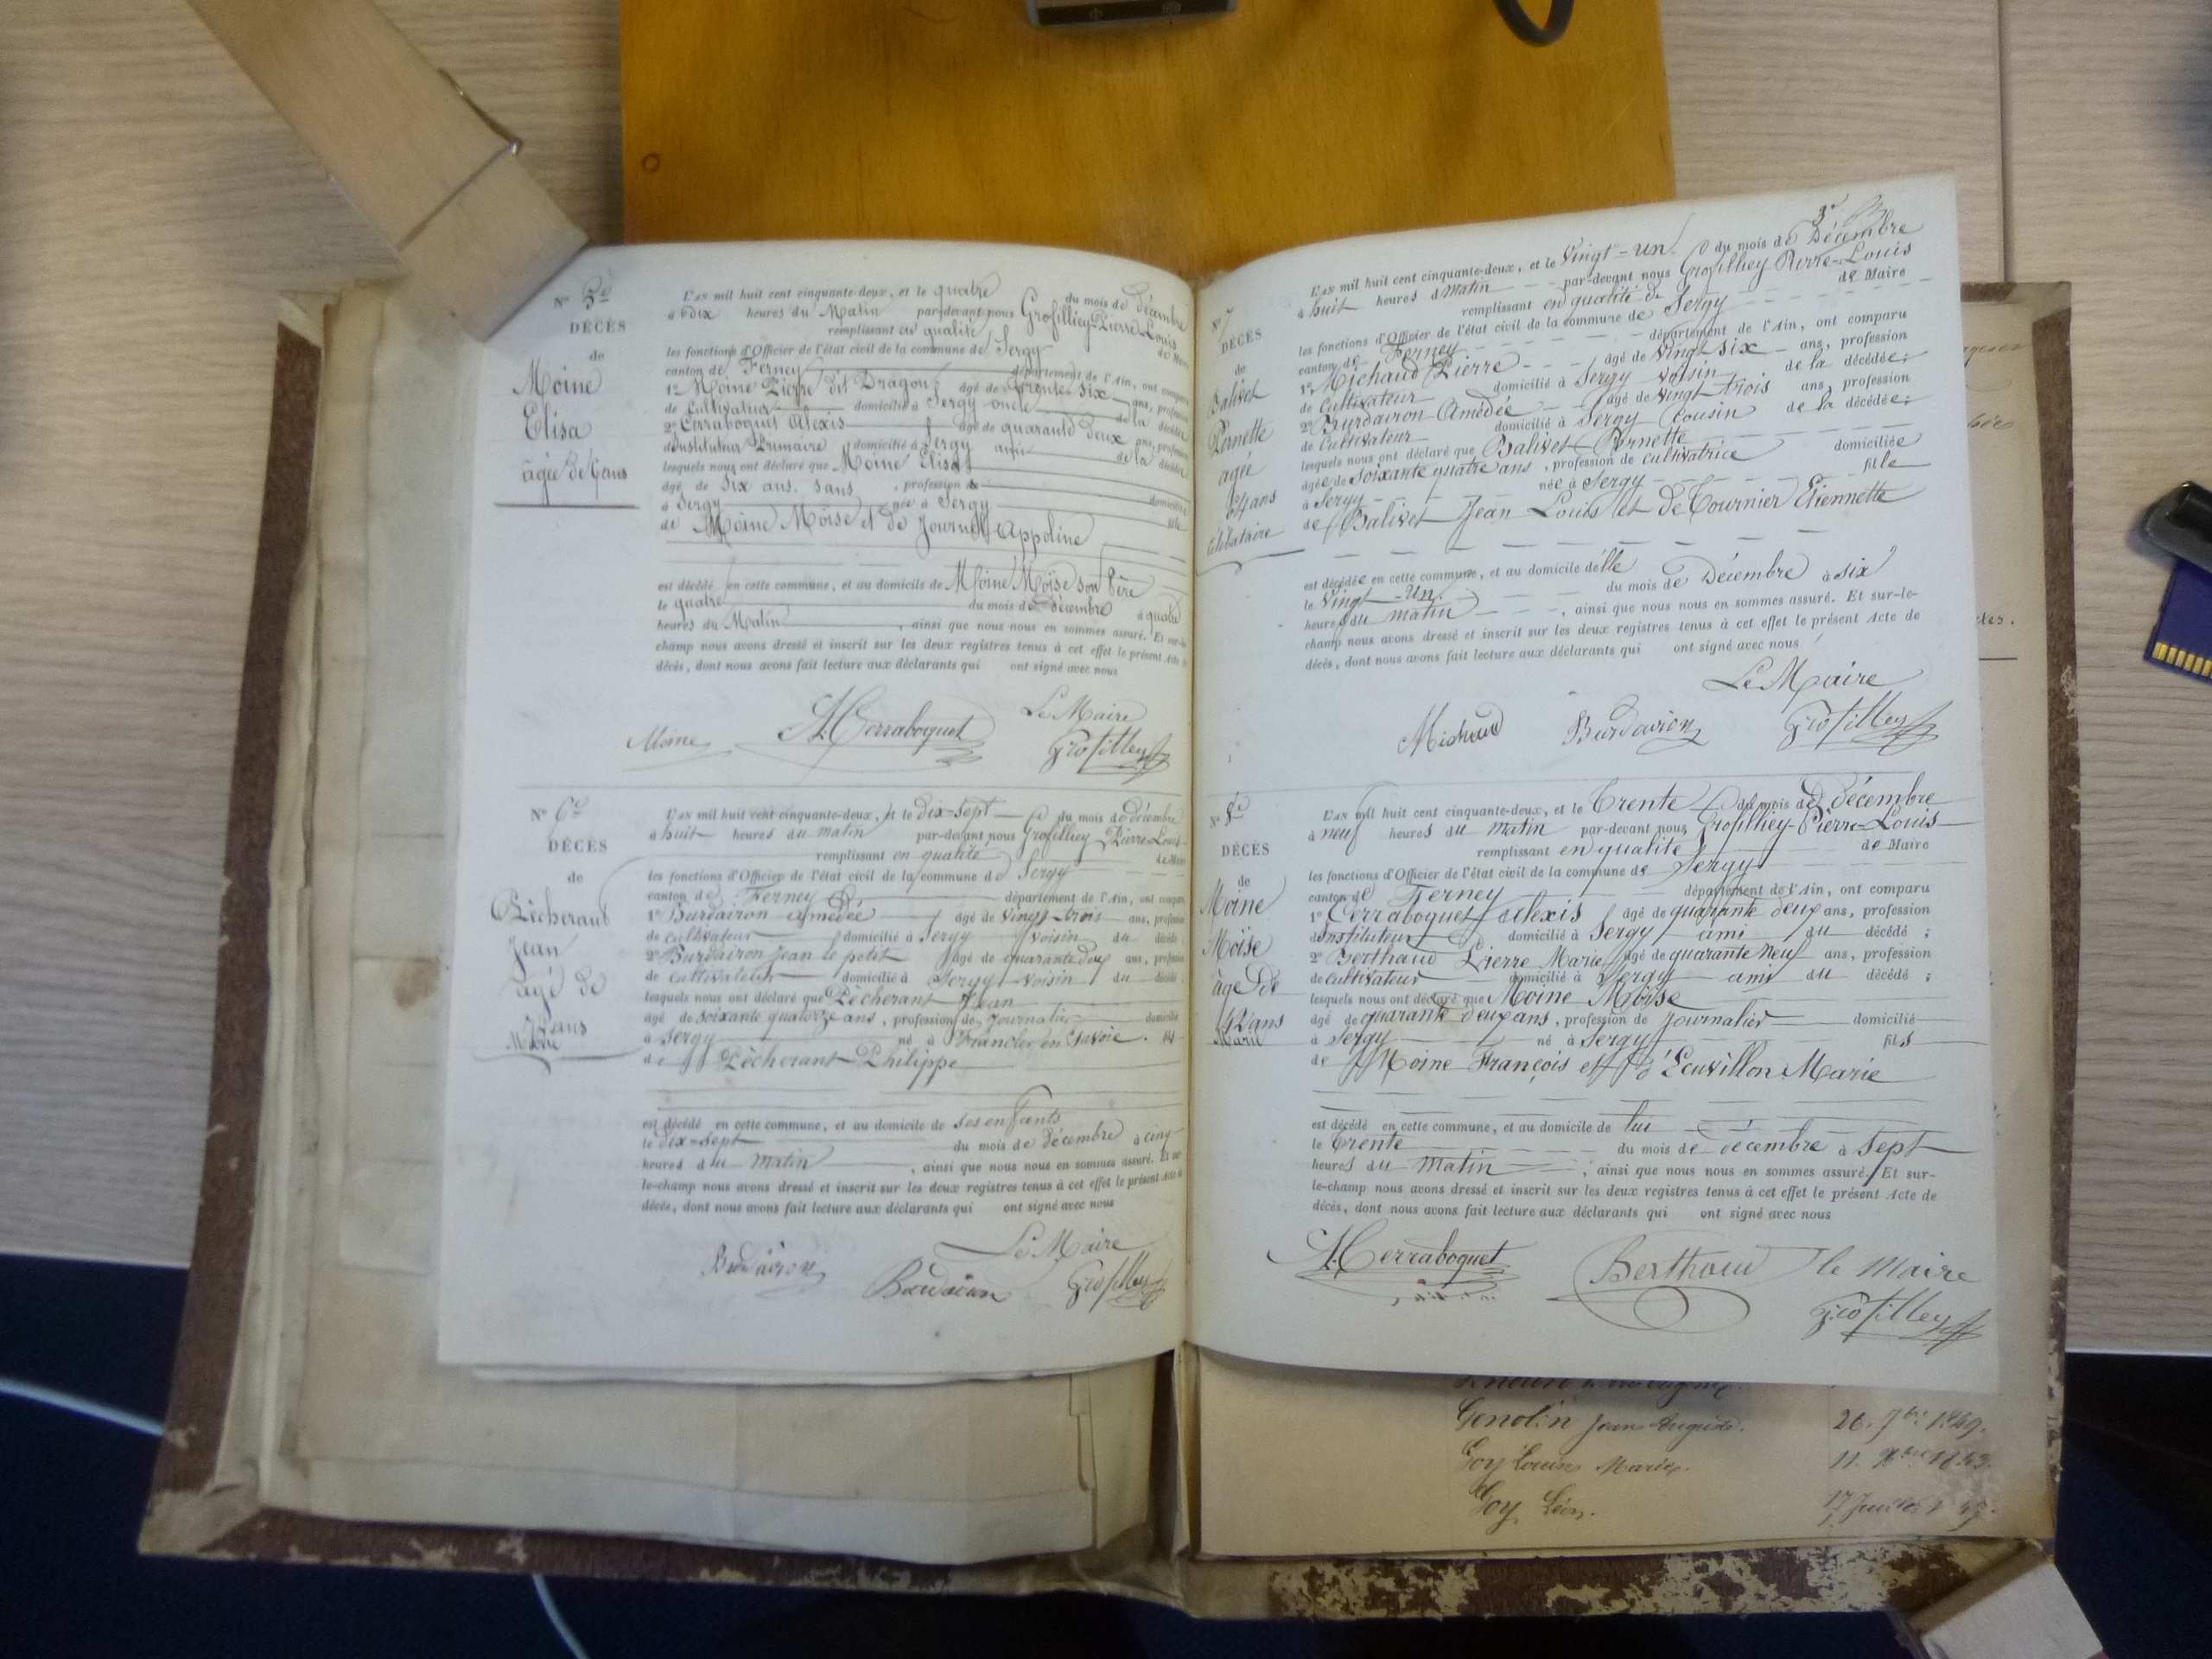 N° 5e
DÉCÈS
de
Moine
Elisa
âgée de 6 ans
L'AN mil huit cent cinquante-deux, et le quatre du mois de Décembre
à dix heures du Matin par-devant nous Grosfilliey Pierre Louis
remplissant en qualité de Maire
les fonctions d'Officier de l'état civil de la commune de Sergy
canton de Ferney département de l'Ain, ont comparu
1° Moine Pierre dit Dragon âgé de trente six ans, profession
de Cultivateur domicilié à Sergy oncle de la décédée
2° Cerraboquet Alexis âgé de quarante deux ans, profession
d'Instituteur Primaire domicilié à Sergy ami de la décédée
lesquels nous ont déclaré que Moine Elisa
âgé de Six ans. sans , profession de
à Sergy née à Sergy domiciliée
de Moine Moïse et de Journel Appoline fille
est décédé en cette commune, et au domicile de Moine Moïse son Père
le quatre du mois de Décembre à quatre
heures du Matin , ainsi que nous nous en sommes assuré. Et sur-le-
champ nous avons dressé et inscrit sur les deux registres tenus à cet effet le présent Acte de
décès, dont nous avons fait lecture aux déclarants qui ont signé avec nous
Le Maire
Moine A. Cerraboquet Grosfilley
N° 6e
DÉCÈS
de
Pècherant
Jean
âgé de
74 ans
Marié
L'AN mil huit cent cinquante-deux, et le dix-sept du mois de décembre
à huit heures du matin par-devant nous Grosfilliey Pierre-Louis
remplissant en qualité de Maire
les fonctions d'Officier de l'état civil de la commune de Sergy
canton de Ferney département de l'Ain, ont comparu
1° Burdairon Amédée âgé de vingt-trois ans, profession
de cultivateur domicilié à Sergy voisin du décédé
2° Burdairon Jean le petit âgé de quarante deux ans, profession
de cultivateur domicilié à Sergy voisin du décédé
lesquels nous ont déclaré que Pècherant Jean
âgé de soixante quatorze ans , profession de Journalier domicilié
à Sergy né à Franclens en Savoie. fils
de Pècherant Philippe
est décédé en cette commune, et au domicile de ses enfants
le dix-sept du mois de décembre à cinq
heures du matin , ainsi que nous nous en sommes assuré. Et sur-
le-champ nous avons dressé et inscrit sur les deux registres tenus à cet effet le présent Acte de
décès, dont nous avons fait lecture aux déclarants qui ont signé avec nous
Le Maire
Burdairon Burdairon Grosfilley
3e
N° 7
DÉCÈS
de
Balivet
Pernette
agée
64 ans
célibataire
L'AN mil huit cent cinquante-deux, et le Vingt-un du mois de Décembre
à huit heures du matin par-devant nous Grosfilliey Pierre-Louis
remplissant en qualité de de Maire
les fonctions d'Officier de l'état civil de la commune de Sergy
canton de Ferney département de l'Ain, ont comparu
1° Michaud Pierre âgé de vingt-six ans, profession
de Cultivateur domicilié à Sergy voisin de la décédée;
2° Burdairon Amédée âgé de vingt trois ans, profession
de Cultivateur domicilié à Sergy Cousin de la décédée;
lesquels nous ont déclaré que Balivet Pernette
âgée de soixante quatre ans , profession de cultivatrice domiciliée
à Sergy née à Sergy fille
de Balivet Jean Louis et de Tournier Etiennette
est décédée en cette commune, et au domicile d'elle
le Vingt-Un. du mois de Décembre à six
heures du matin , ainsi que nous nous en sommes assuré. Et sur-le-
champ nous avons dressé et inscrit sur les deux registres tenus à cet effet le présent Acte de
décès, dont nous avons fait lecture aux déclarants qui ont signé avec nous
Le Maire
Michaud Burdairon Grosfilley
N° 8e
DÉCÈS
de
Moine
Moïse
âgé de
42 ans
Marié
L'AN mil huit cent cinquante-deux, et le Trente du mois de décembre
à neuf heures du matin par-devant nous Grosfilliey-Pierre-Louis
remplissant en qualité de Maire
les fonctions d'Officier de l'état civil de la commune de Sergy
canton de Ferney département de l'Ain, ont comparu
1° Cerraboquet Alexis âgé de quarante deux ans, profession
d'Instituteur domicilié à Sergy ami du décédé ;
2° Berthaud Pierre Marie âgé de quarante neuf ans, profession
de cultivateur domicilié à Sergy ami du décédé ;
lesquels nous ont déclaré que Moine Moïse
âgé de quarante deux ans , profession de Journalier domicilié
à Sergy né à Sergy fils
de Moine François et d'Ecuvillon Marie
est décédé en cette commune, et au domicile de lui
le Trente du mois de décembre à sept
heures du matin , ainsi que nous nous en sommes assuré. Et sur-
le-champ nous avons dressé et inscrit sur les deux registres tenus à cet effet le présent Acte de
décès, dont nous avons fait lecture aux déclarants qui ont signé avec nous
A. Cerraboquet Berthoud le Maire
Grosfilley
Genolin Jean Auguste. 26. 7bre 1849.
Goy Louise Marie.
Goy Léon. 17 Juillet